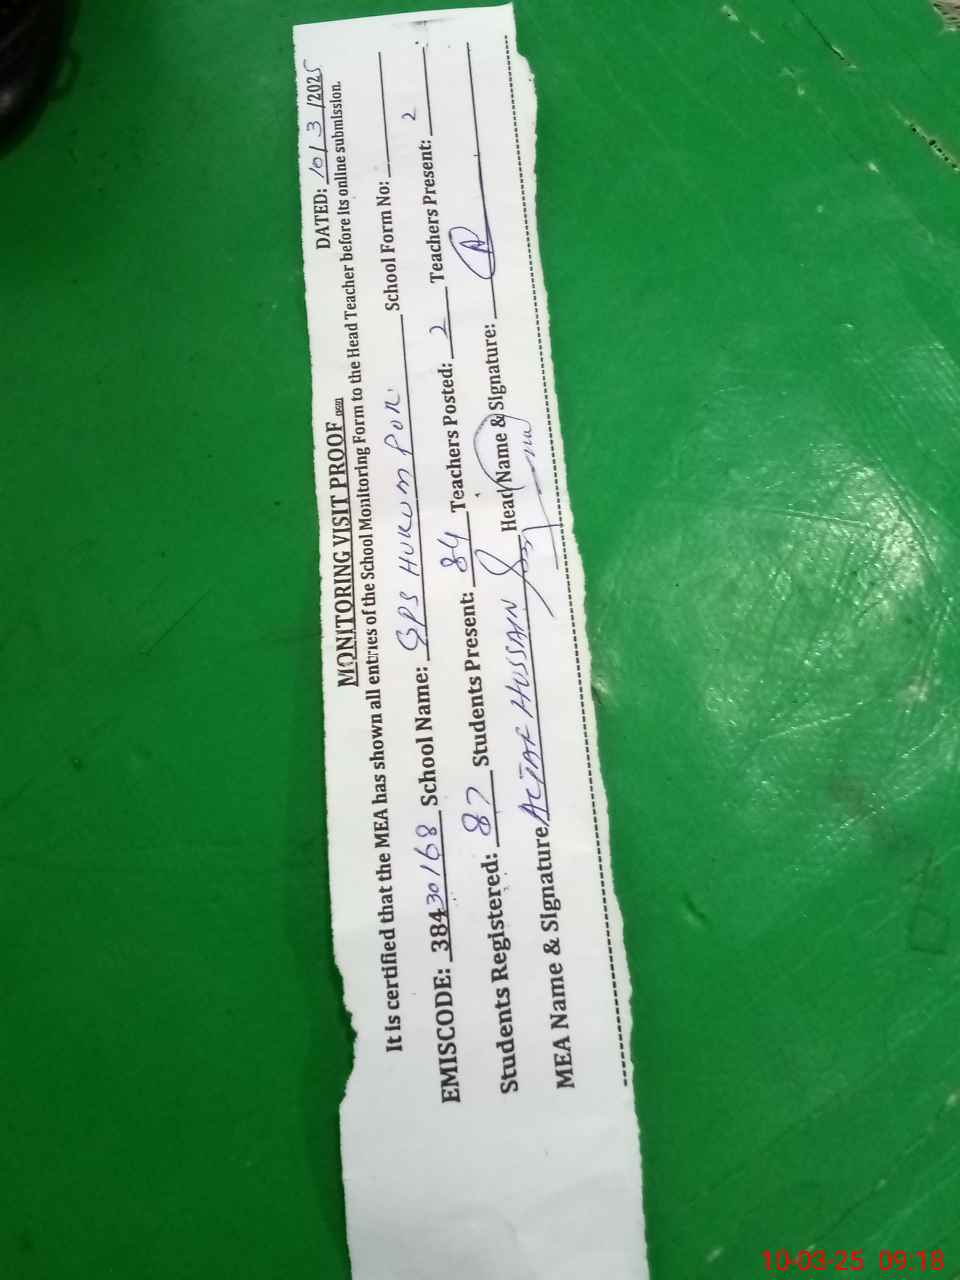 DATED: 10/3/2025
MONITORING VISIT PROOF
It is certified that the MEA has shown all entries of the School Monitoring Form to the Head Teacher before its online submission.
EMISCODE: 38430168 School Name: GPS HUKUM PUR School Form No:
Students Registered: 87 Students Present: 84 Teachers Posted: 2 Teachers Present: 2
MEA Name & Signature HUSSAIN Head Name & Signature:
10-03-25 09:18